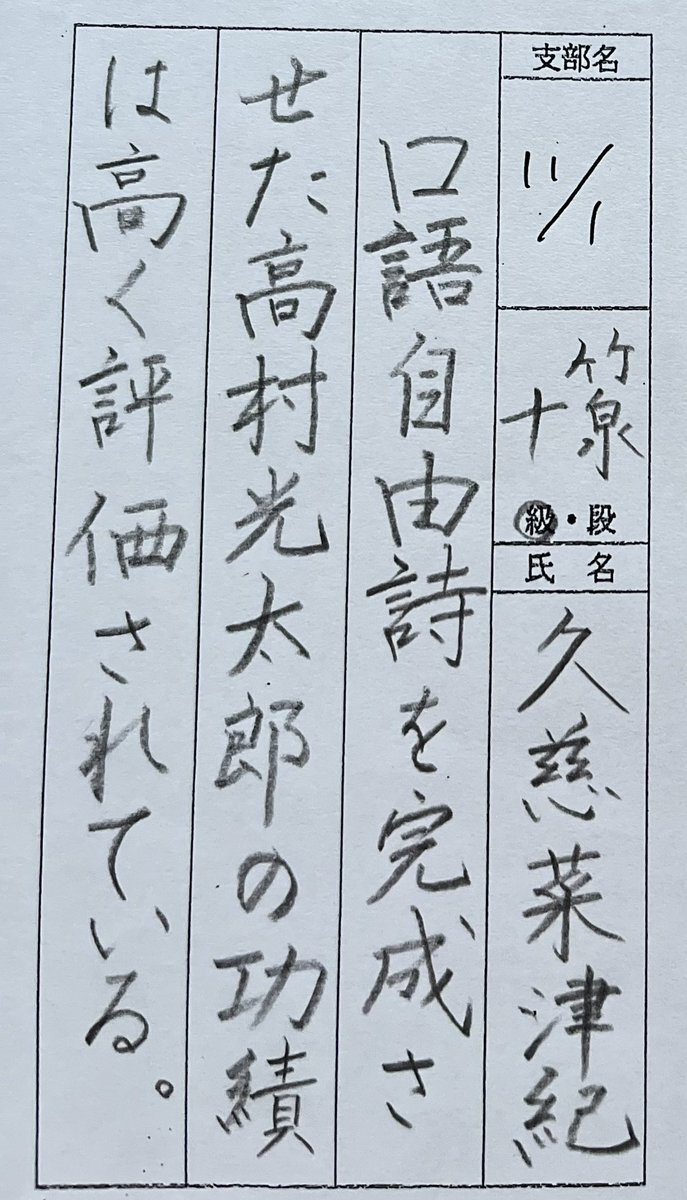 支部名
11/1
竹泉
十
級・段
氏名
久慈菜津紀
口語自由詩を完成さ
せた高村光太郎の功績
は高く評価されている。